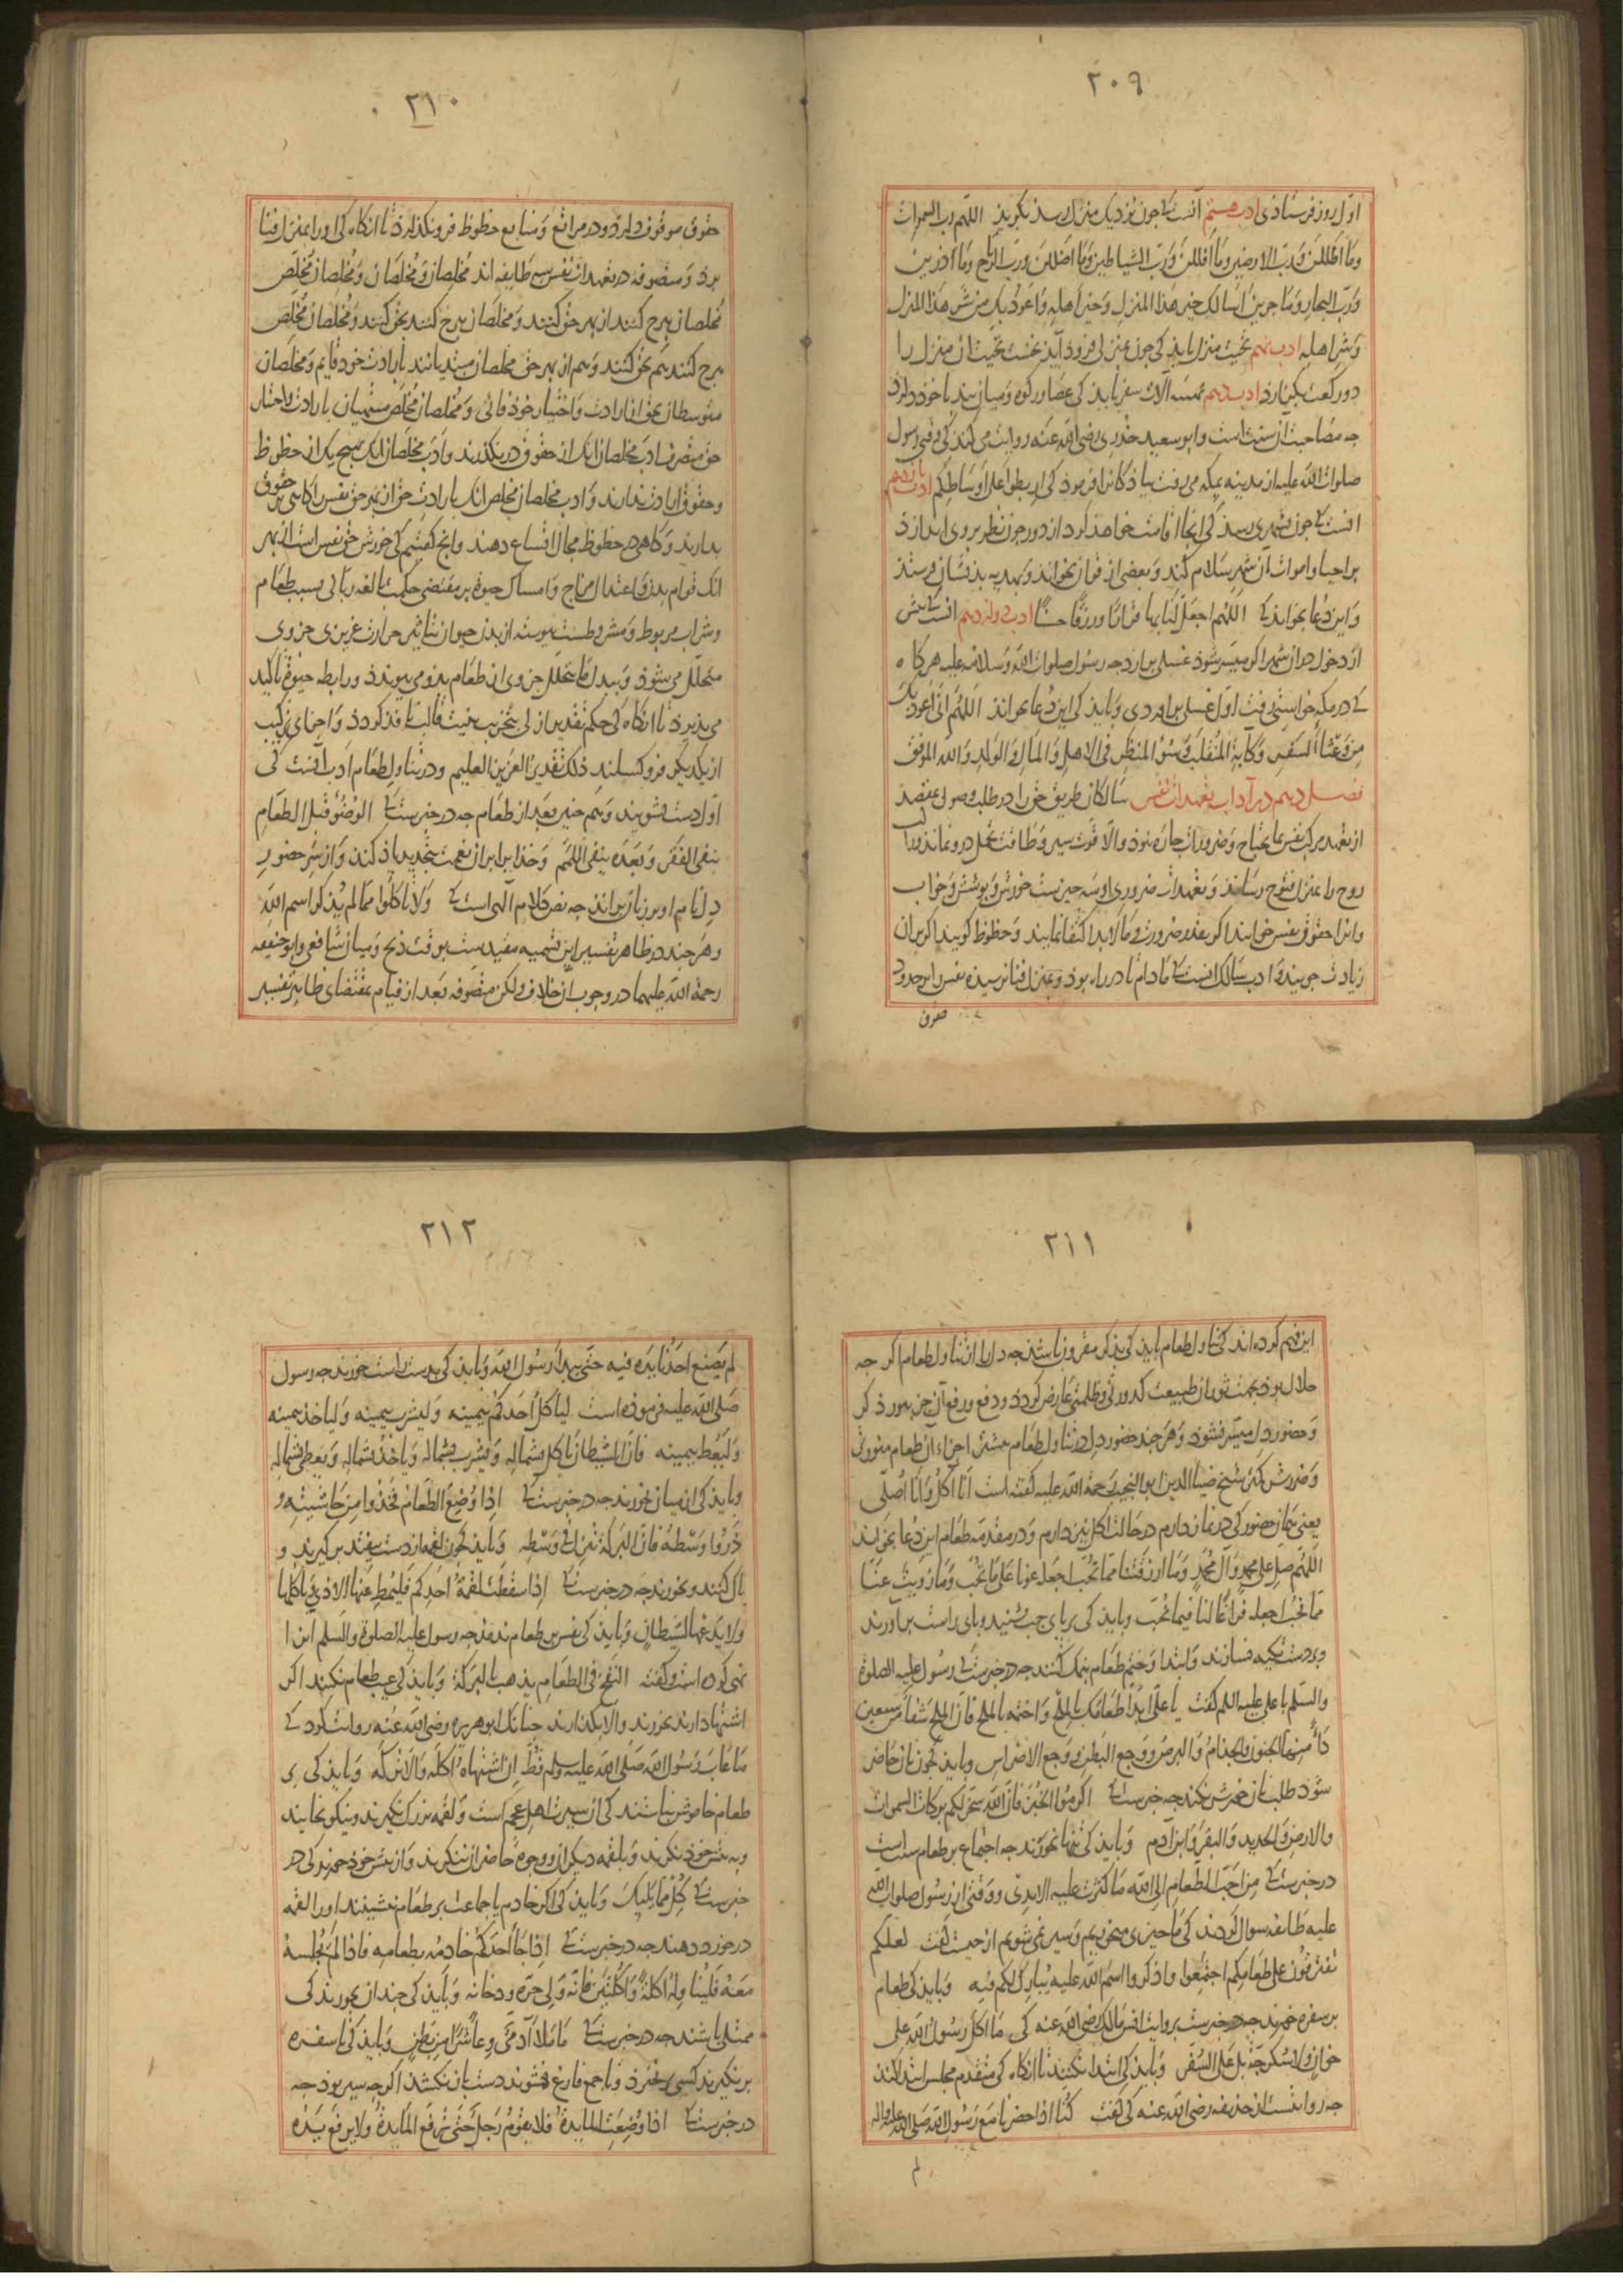 ٢٠٩
اول روز فرستاذی ادب هشتم آنست کی جون نزدیک منزل رسذ بکویذ اللهم رب السموات
وما اظللن ورب الارضین وما اقللن ورب الشیاطین وما اضللن ورب الریاح وما اذرین
ورب البحار وما جرین اسالک خیر هذا المنزل وخیر اهله واعوذ بک من شر هذا المنزل
وشر اهله ادب نهم تحیت منزل بایذ کی جون بمنزلی فروذ آیذ نخست تحیت آن منزل را
دو رکعت بکزارد ادب دهم آلات سفر بایذ کی عصا و رکوه و میان بند با خوذ دارذ
جه مصاحبت آن سنت است وابو سعید خذری رضی الله عنه روایت می کند کی وقتی رسول
صلوات الله علیه از مدینه بمکه می رفت بیاذکانرا فرموذ کی اربطوا علی اوساطکم ادب یازدهم
آنست کی جون بشهری رسذ کی آنجا اقامت خواهذ کرد از دور جون نظر بر وی اندازذ
بر احیا واموات آن شهر سلام کند و بعضی از قرآن بخواند و بهدیه بذیشان فرستذ
و این دعا بخواند کی اللهم اجعل لنا بها قرارا ورزقا حسنا ادب دوازدهم آنست کی بیش
از دخول در آن شهر اکر میسر شوذ غسلی برآرد جه رسول صلوات الله وسلامه علیه هرکاه
کی در مکه خواستی رفت اول غسلی برآوردی و بایذ کی این دعا بخواند اللهم انی اعوذ بک
من وعثاء السفر وکابة المنقلب وسوء المنظر فی الاهل والمال والولد والله الموفق
فصل دهم در آداب تعهدات نفس سالکان طریق حق را در طلب وصول بمقصد
از تعهد مرکب نفس بما یحتاج و ضرورات جاره نبوذ والا قوت سیر و طاقت تحمل درو نماند
روح را بمنزل فتوح رساند و تعهدات ضروری او سه جیزست خورش و بوشش و خواب
و آنرا حقوق نفس خوانند اکر بقدر ضرورت و مالابد اکتفا نمایند و حظوظ کویند اکر بران
زیادت جویند و ادب سالک آنست کی ماداما تا در راه بوذ و بمنزل فنا نرسیده نفس را بر حدود
حقوق
٢١٠
حقوق موقوف دارذ و در مراتع و منابع حظوظ فرو نکذارذ تا آنکاه کی او را بمنزل فنا
برذ و متصوفه در تعهدات نفس سه طایفه اند مخلصان و مخلصان و مخلصان مخلص
مخلصان هرج کنند از بهر حق کنند و مخلصان هرج کنند بحق کنند و مخلصان مخلص
هرج کنند هم بحق کنند و هم از بهر حق مخلصان مبتدیانند بارادت خوذ قایم و مخلصان
متوسطان بحق از ارادت و اختیار خوذ فانی و مخلصان مخلص منتهیان بارادت و اختیار
حق متصرف ادب مخلصان آنک از حقوق درنکذرند و ادب مخلصان آنک هیج یک از حظوظ
و حقوق ارادت ندارند و ادب مخلصان مخلص آنک بارادت حق از بهر حق نفس را کاهی بر حقوق
بدارند و کاهی در حظوظ مجال اتساع دهند وانج کفتیم کی خورش حق نفس است از بهر
آنک قوام بدن و اعتدال مزاج و امساک حیوة بر مقتضی حکمت بالغه ربانی بسبب طعام
و شراب مربوط و مشروطست بیوسته از بدن حیوان بتاثیر حرارت غریزی جزوی
متحلل می شوذ و ببدل ما یتحلل جزوی از طعام بدو می بیوندذ و رابطه حیوة تاکید
می پذیرذ تا آنکاه کی حکم تقدیر ازلی بتخریب بنیت قالب نافذ کردذ و اجزای ترکیب
از یکدیکر فروکسلند ذلک تقدیر العزیز العلیم و در تناول طعام ادب آنست کی
اول دست بشویند و هم جنین بعد از طعام جه در خبرست کی الوضوء قبل الطعام
ینفی الفقر وبعده ینفی اللمم و خذایرا بر آن نعمت بتجدید یاذ کنند و از سر حضور
دل نام او بر زبان براند جه نص کلام الهی است کی ولا تاکلوا مما لم یذکر اسم الله
و هرجند در ظاهر تفسیر این تسمیه مقیدست بوقت ذبح و میان شافعی و ابو حنیفه
رحمة الله علیهما در وجوب آن خلاف ولکن متصوفه بعد از قیام بمقتضای ظاهر تفسیر
٢١١
این فهم کرده اند کی تناول طعام بایذ کی بذکر مقرون باشذ جه دل را از تناول طعام اکر جه
حلال بوذ بجهت ثوران طبیعت کدورتی و ظلمتی عارض کردذ و دفع و رفع آن جز بنور ذکر
و حضور دل میسر نشوذ و هر جند حضور دل در تناول طعام بیشتر اجزاء آن طعام منورتر
و ضررش کمتر شیخ ضیاالدین ابو النجیب رحمة الله علیه کفته است انا آکل وانا اصلی
یعنی همان حضور کی در نماز دارم در حالت اکل نیز دارم و در مقدمه طعام این دعا بخوانند
اللهم صل علی محمد وآل محمد وما ارزقتنا مما تحب اجعله عونا علی ما تحب وما زویت عنا
مما تحب اجعله فراغا لنا فیما تحب و بایذ کی بر پای جب نشینند و پای راست برآورند
و بر دست تکیه نسازند و ابتدا و ختم طعام بنمک کنند جه در خبرست کی رسول علیه الصلوة
والسلم با علی علیه السلم کفت یا علی ابدأ طعامک بالملح واختمه بالملح فان الملح شفاء من سبعین
داء منها الجنون والجذام والبرص ووجع البطن ووجع الاضراس و بایذ کی جون نان حاضر
شوذ طلب نان خورش نکنند جه خبرست کی اکرموا الخبز فان الله سخر لکم برکات السموات
والارض والحدید والبقر وابن آدم و بایذ کی تنها نخورند جه اجتماع بر طعام سنت است
در خبرست کی من احب الطعام الی الله ما کثرت علیه الایدی و وقتی از رسول صلوات الله
علیه طایفه سوال کردند کی ما جیزی می خوریم و سیر نمی شویم از جیست کفت لعلکم
تفترقون علی طعامکم اجتمعوا واذکروا اسم الله علیه یبارک لکم فیه و بایذ کی طعام
بر سفره خورند جه در خبرست بروایت انس مالک رضی الله عنه کی ما اکل رسول الله علی
خوان ولا سکرجة بل علی السفر و بایذ کی ابتدا نکنند تا آنکاه کی متقدم مجلس ابتدا کند
جه روایتست از حذیفه رضی الله عنه کی کفت کنا اذا حضرنا مع رسول الله صلی الله علیه واله
لم
٢١٢
لم یضع احدنا یده فیه حتی یبدأ رسول الله و بایذ کی بدست راست خورند جه رسول
صلی الله علیه فرموذه است لیاکل احدکم بیمینه ولیشرب بیمینه ولیاخذ بیمینه
ولیعط بیمینه فان الشیطان یاکل بشماله ویشرب بشماله ویاخذ بشماله ویعطی بشماله
و بایذ کی از میان نخورند جه در خبرست کی اذا وضع الطعام فخذوا من حاشیته و
ذروا وسطه فان البرکة تنزل فی وسطه و بایذ کی جون لقمه از دست بیفتذ برکیرند و
پاک کنند و بخورند جه در خبرست کی اذا سقطت لقمة احدکم فلیمط عنها الاذی ولیاکلها
ولا یدعها للشیطان و بایذ کی نفس بر طعام ندمند جه رسول علیه الصلوة والسلم آنرا
نهی کرده است و کفته النفخ فی الطعام یذهب البرکة و بایذ کی عیب طعام نکنند اکر
اشتها دارند بخورند والا بکذارند جنانک ابوهریره رضی الله عنه روایت کرد کی
ما عاب رسول الله صلی الله علیه وسلم قط ان اشتهاه اکله والا ترکه و بایذ کی بر
طعام خاموش نباشند کی آن سیرت اهل عجم است و لقمه بزرک نکیرند و نیکو بخایند
و به پیش خوذ نکرند و بلقمه دیکران و وجوه حاضران ننکرند و از پیش خوذ خورند کی در
خبرست کی کل مما یلیک و بایذ کی اکر خادم با جماعت بر طعام ننشیند او را لقمه
در خورد دهند جه در خبرست کی اذا جاء احدکم خادمه بطعامه فاذا لم یجلسه
معه فلیناوله اکلة واکلتین فانه ولی حره ودخانه و بایذ کی جندان نخورند کی
ممتلی باشند جه در خبرست کی ما ملأ آدمی وعاء شرا من بطن و بایذ کی تا سفره
برنکیرند کسی برنخیزذ و تا جمع فارغ نشوند دست باز نکشذ اکرجه سیر بوذ جه
در خبرست کی اذا وضعت المایدة فلا یقوم رجل حتی ترفع المایدة ولا یرفع یده